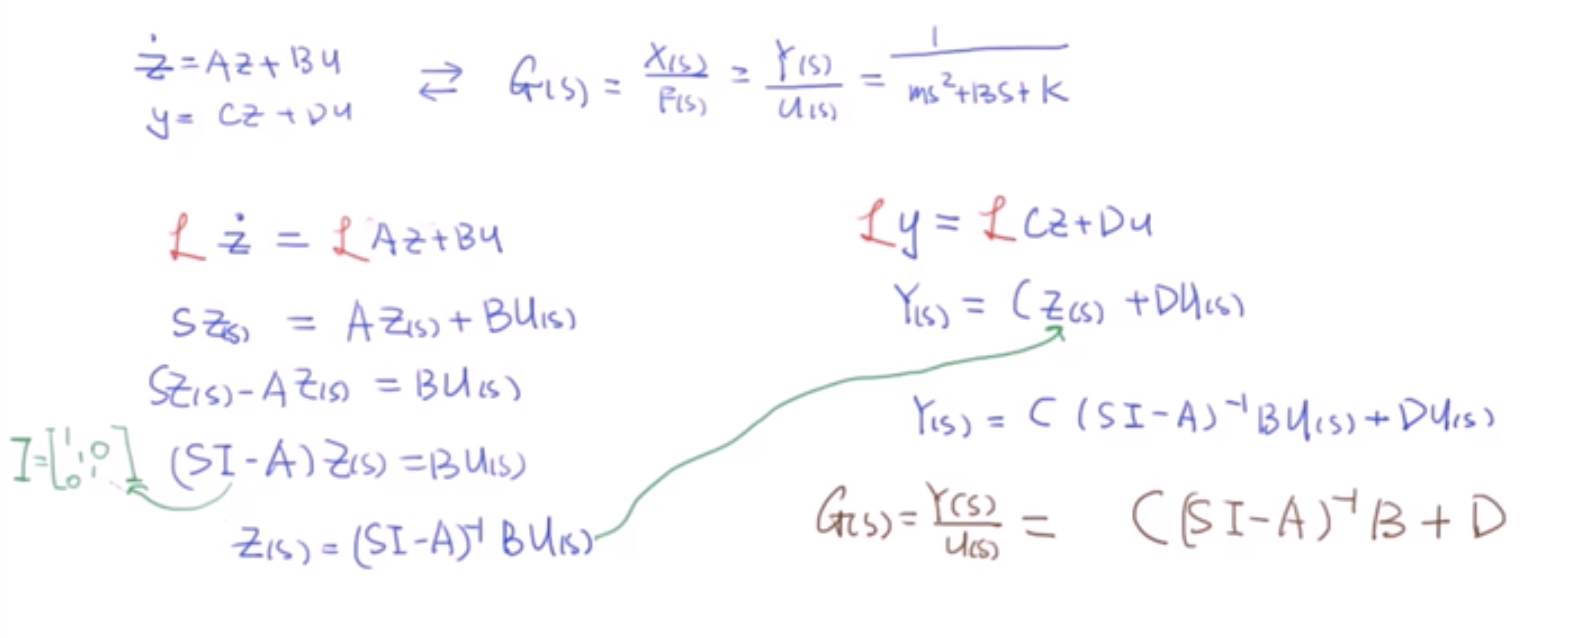 ż = Az + Bu
y = Cz + Du
⇄ G(s) = X(s)/F(s) = Y(s)/U(s) = 1/(ms²+Bs+K)
ℒ ż = ℒ Az + Bu
sZ(s) = AZ(s) + BU(s)
sZ(s) - AZ(s) = BU(s)
I = [1 1 0 0 1 1] (SI-A) Z(s) = BU(s)
Z(s) = (SI-A)⁻¹ BU(s)
ℒy = ℒ Cz + Du
Y(s) = C Z(s) + DU(s)
Y(s) = C (SI-A)⁻¹ BU(s) + DU(s)
G(s) = Y(s)/U(s) = C(SI-A)⁻¹B + D